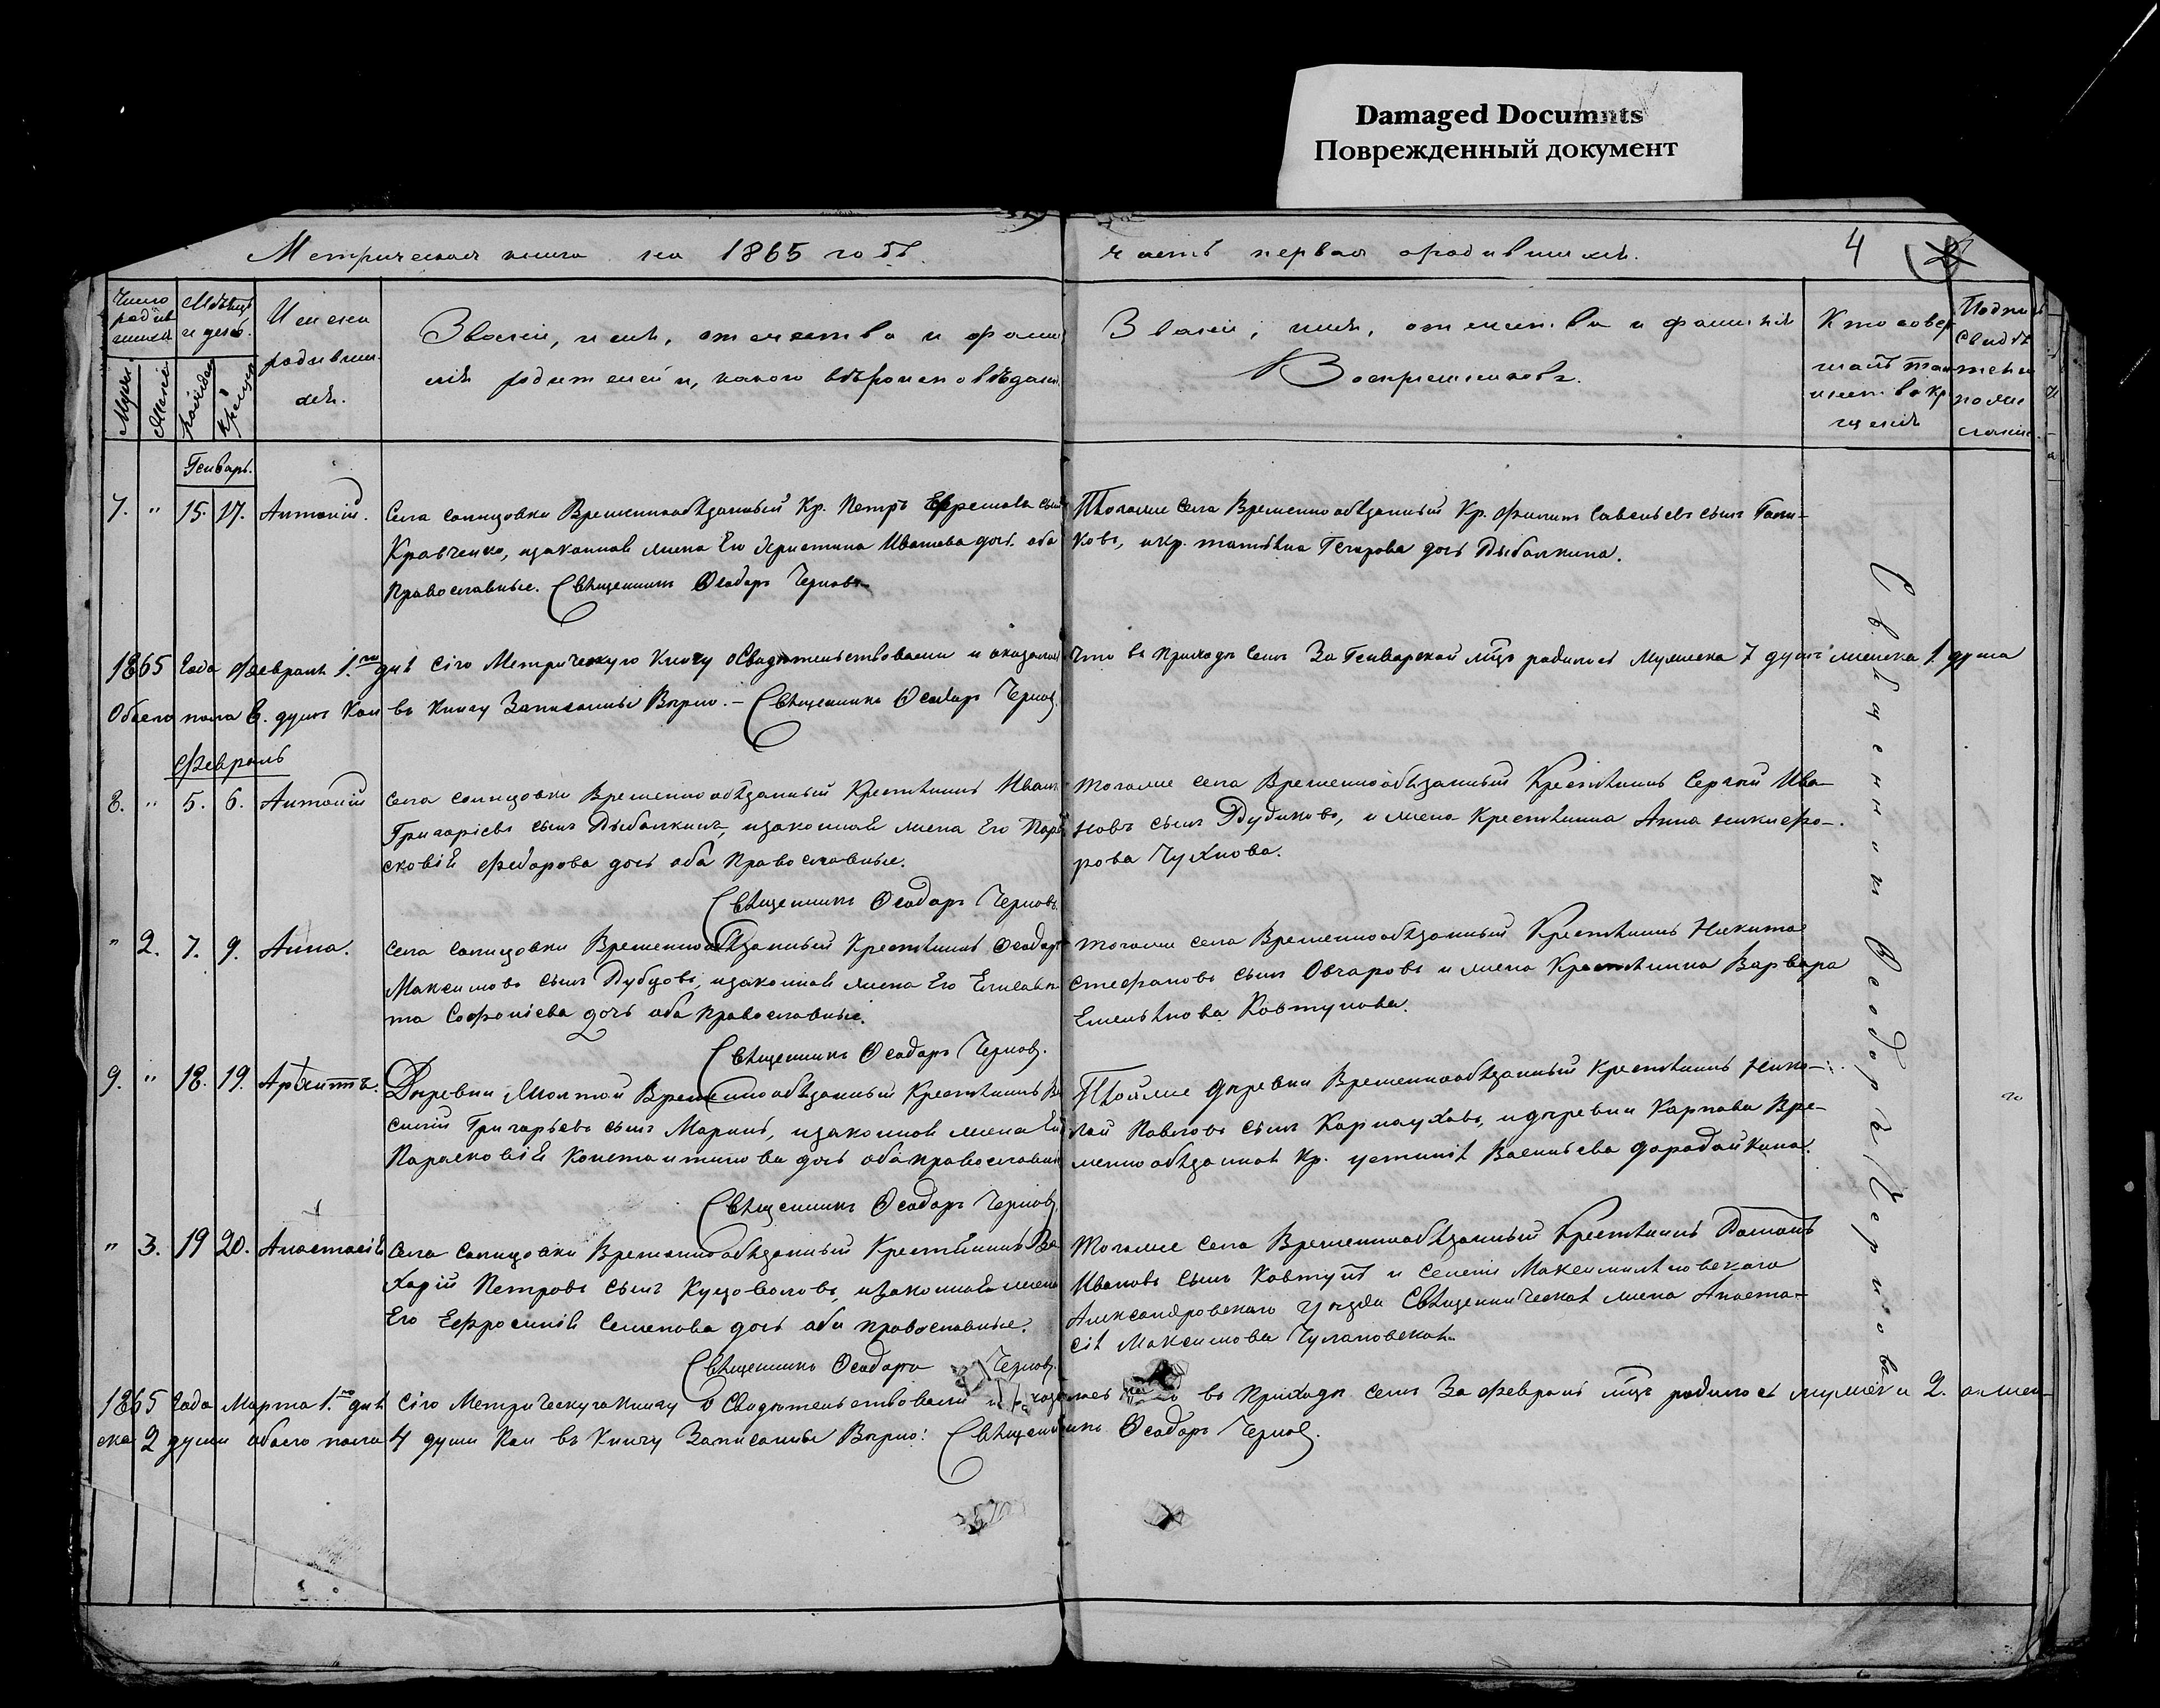 Damaged Documnts
Поврежденный документ
Метрическая книга на 1865 годъ.
часть первая о родившихся.
4
Число родившихся
Мѣсяцъ и день.
Мужес
Женс
рожден
крещен
Имена родившихся.
Званіе, имя, отчество и фамилія родителей и, какого вѣроисповѣданія.
Званіе, имя, отчество и фамилія
Воспріемниковъ.
Кто совершалъ таинство крещенія
Генварь.
7. " 15. 17. Антоній.
Села солнцовки Временнообязанный Кр. Петръ Ефремовъ сынъ
Кравченко, изаконная жена Его Христина Иванова дочь. оба
Православные. Священникъ Ѳеодоръ Черновъ
Тогоже села Временнообязанный Кр. Филипъ Савельевъ сынъ
ковъ, икр. татьяна дочь Дыбалкина.
1865 Года Февраля 1.го дня Сію Метрическую Книгу освидетельствовали и оказалось Что въ приходѣ семъ За Генварской мцъ родилось Мужеска 7 душъ женска 1. душа
Обоего пола 8. душъ Кои въ Книгу Записанны Вѣрно. – Священникъ Ѳеодоръ Чернов.
Февраль
8. " 5. 6. Антоній
Села солнцовки Временнообязанный Крестьянинъ Иванъ
Григоріевъ сынъ Дыбалкинъ, изаконная жена Его Пара
сковія Федорова дочь оба Православные.
Священникъ Ѳеодоръ Черновъ.
тогоже села Временнообязанный Крестьянинъ Сергѣй Ива–
новъ сынъ Дудиковъ, и жена Крестьянина Анна никифо–
рова Чухнова.
" 2. 7. 9. Анна.
села солнцовки Временнообязанный Крестьянинъ Ѳеодоръ
Максимовъ сынъ Дубцовъ, изаконная жена Его Елисаве
та Софоніева дочь оба Православные.
Священникъ Ѳеодоръ Чернов.
тогоже села Временнообязанный Крестьянинъ Никита
стефановъ сынъ Овчаровъ и жена Крестьянина Варвара
Емельянова Ковтунова.
9. " 18. 19. Архиппъ.
Деревни Жолтой Временнообязанный Крестьянинъ Ва
силій Григорьевъ сынъ Маринъ, изаконная жена Его
Парасковія Константинова дочь оба православные
Священникъ Ѳеодоръ Чернов.
Тойже деревни Временнообязанный Крестьянинъ Нико–
лай Павловъ сынъ Карнауховъ, идеревни Карповки Вре–
меннообязанная Кр. устинія Васильева дородайкина.
" 3. 19 20. Анастасія
Села солнцовки Временнообязанный Крестьянинъ За
Харій Петровъ сынъ Куцоволовъ, изаконная жена
Его Ефросинія Семенова дочь оба православные.
Священникъ Ѳеодоръ Чернов.
Тогоже села Временнообязанный Крестьянинъ
Ивановъ сынъ Ковтунъ и селенія Максимильяновскаго
Александровскаго уѣзда Священническая жена Анаста–
сія Максимова Чулановская.
Священникъ Ѳеодоръ Черновъ
1865 Года Марта 1.го дня Сію Метрическую Книгу Освидетельствовали и въ приходѣ семъ За февраль мцъ родилось мужска 2. а жен–
ска 2 души обоего пола 4 души Кои въ Книгу Записанны Вѣрно: Священникъ Ѳеодоръ Чернов.